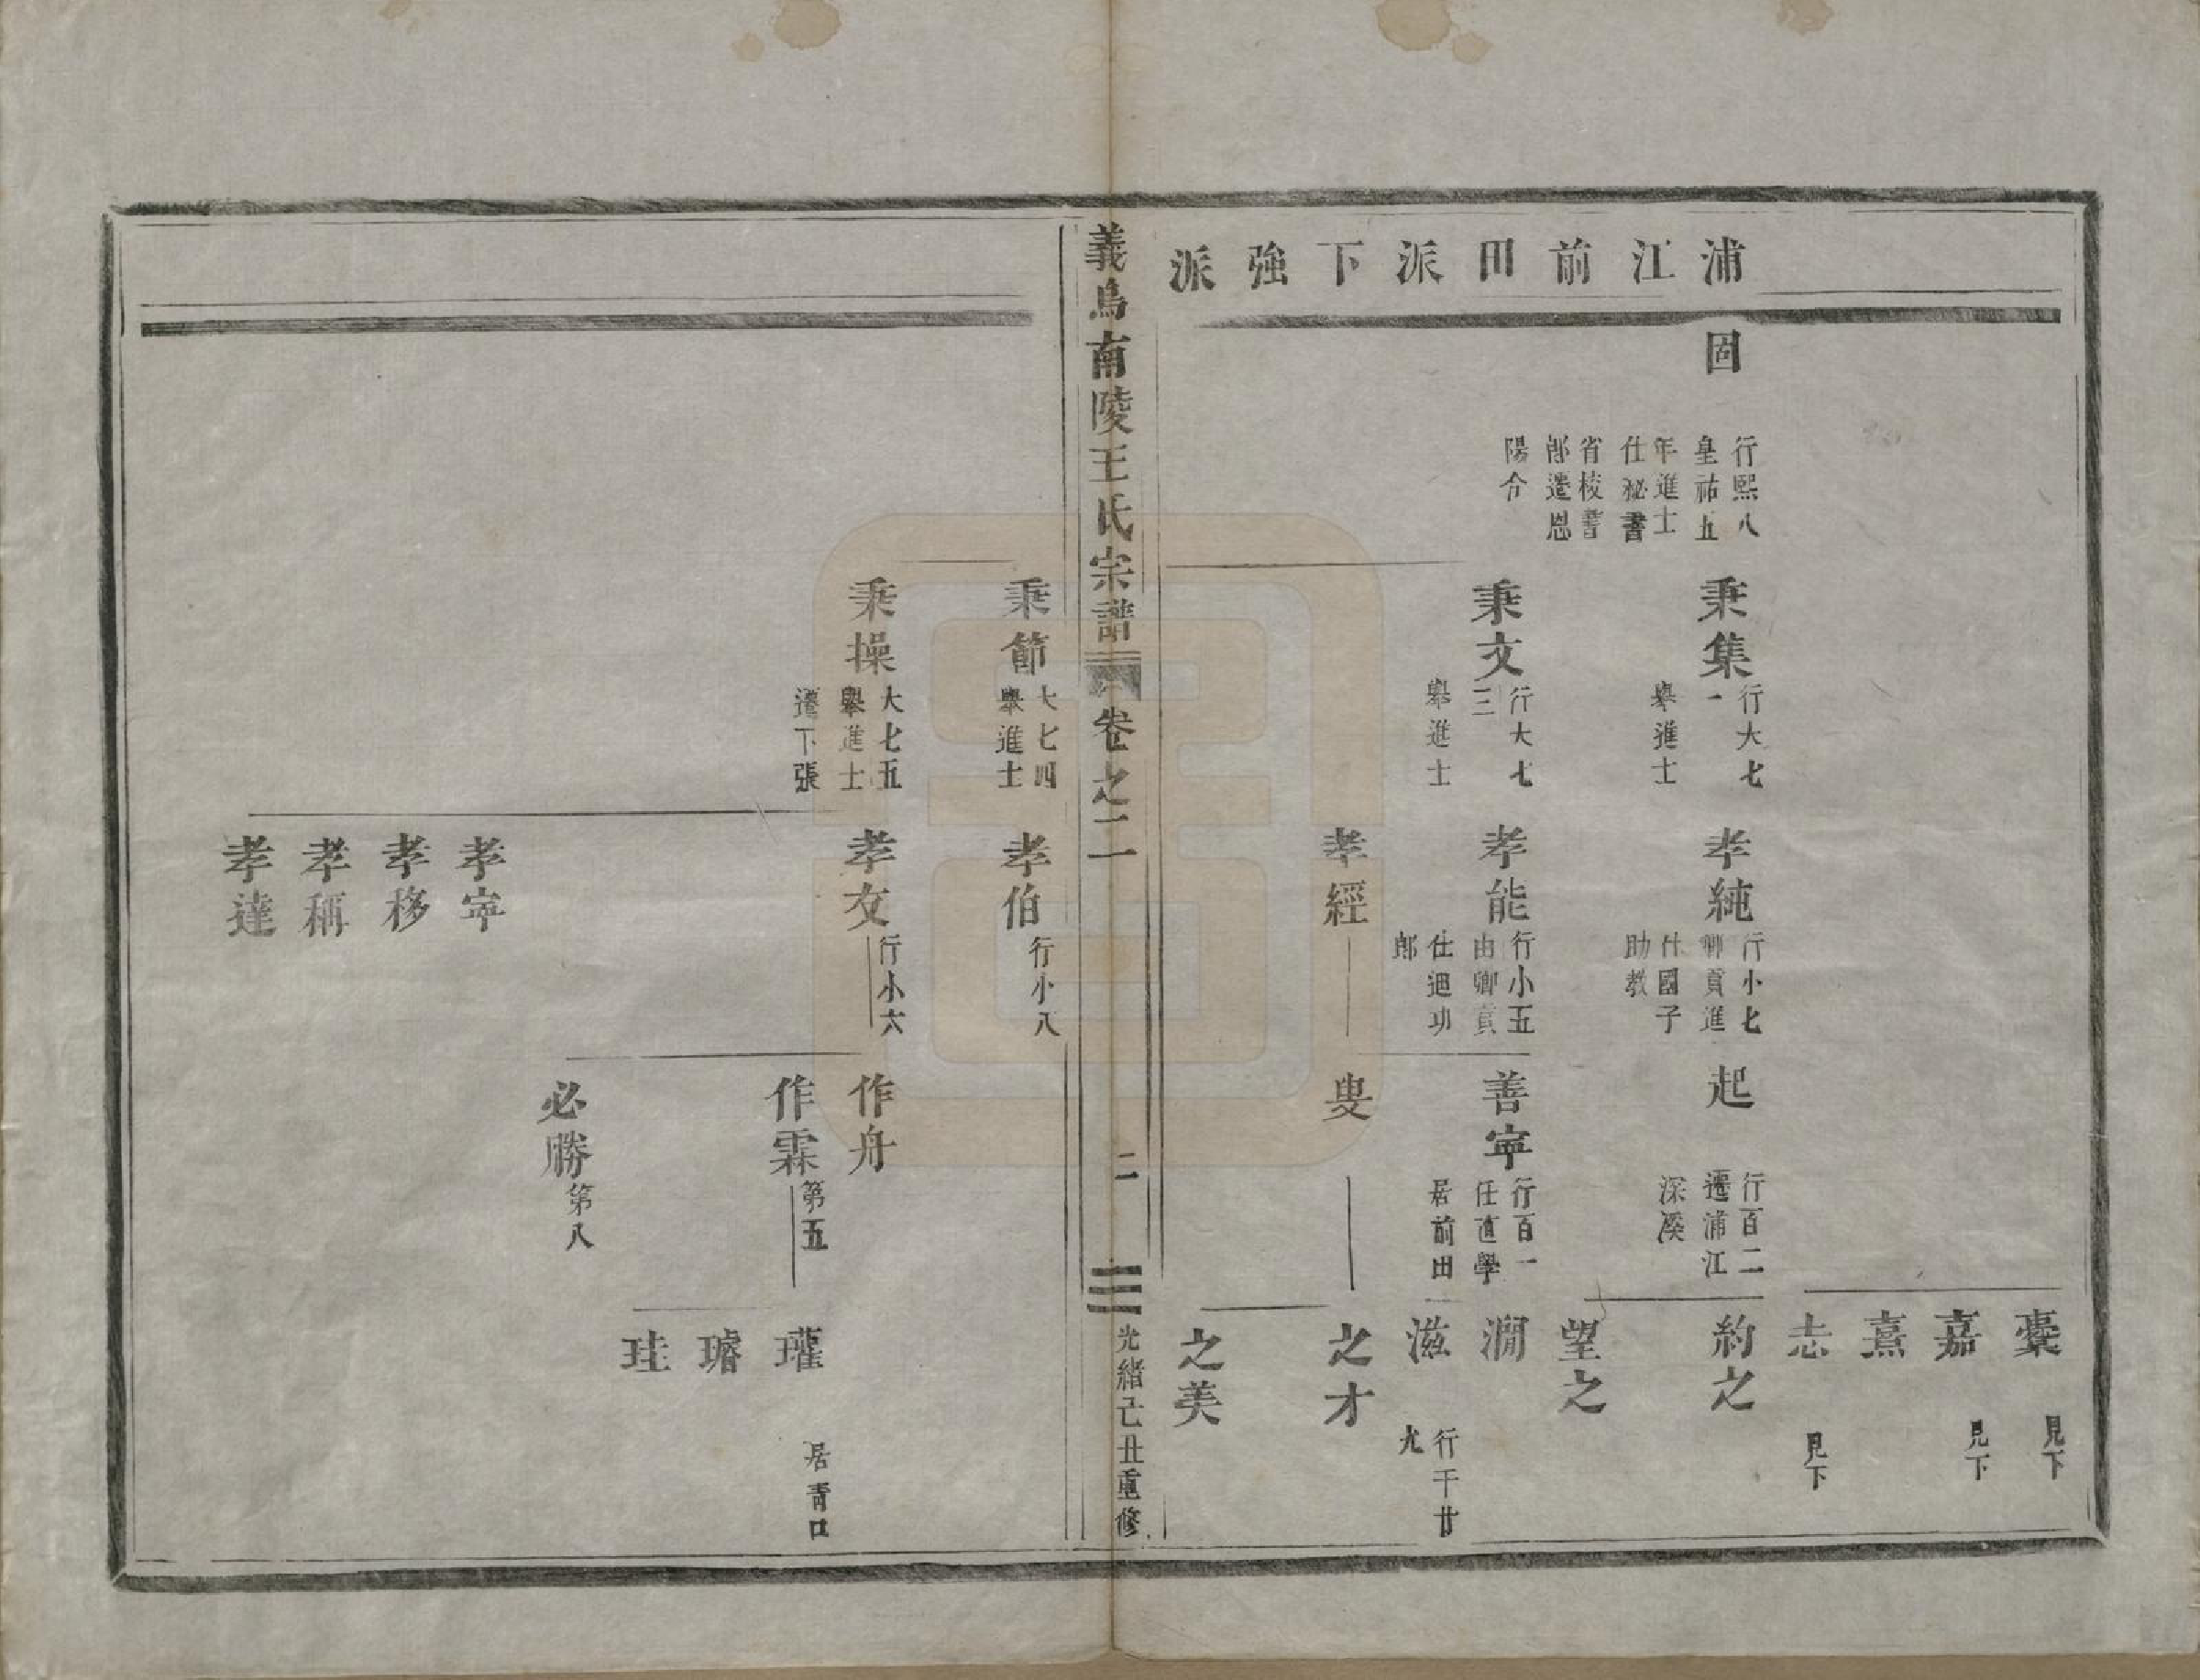 浦江前田派下強派
固
行熙八
皇祐五
年進士
仕祕書
省校書
郎遷恩
陽令
秉集
行大七
一
舉進士
秉文
行大七
三
舉進士
孝純
行小七
鄉貢進
仕國子
助教
孝能
行小五
由鄉貢
仕迪功
郎
孝經
起
行百二
遷浦江
深溪
善寧
行百一
任直學
居前田
叟
櫜
見下
嘉
見下
熹
志
見下
約之
望之
澗
滋
行千廿
九
之才
之美
義烏南陵王氏宗譜
卷之二
二
光緒己丑重修
秉節
大七四
舉進士
秉操
大七五
舉進士
遷下張
孝伯
行小八
孝友
行小六
孝寧
孝移
孝稱
孝達
作舟
作霖
第五
必勝
第八
瓘
居青口
璿
珪